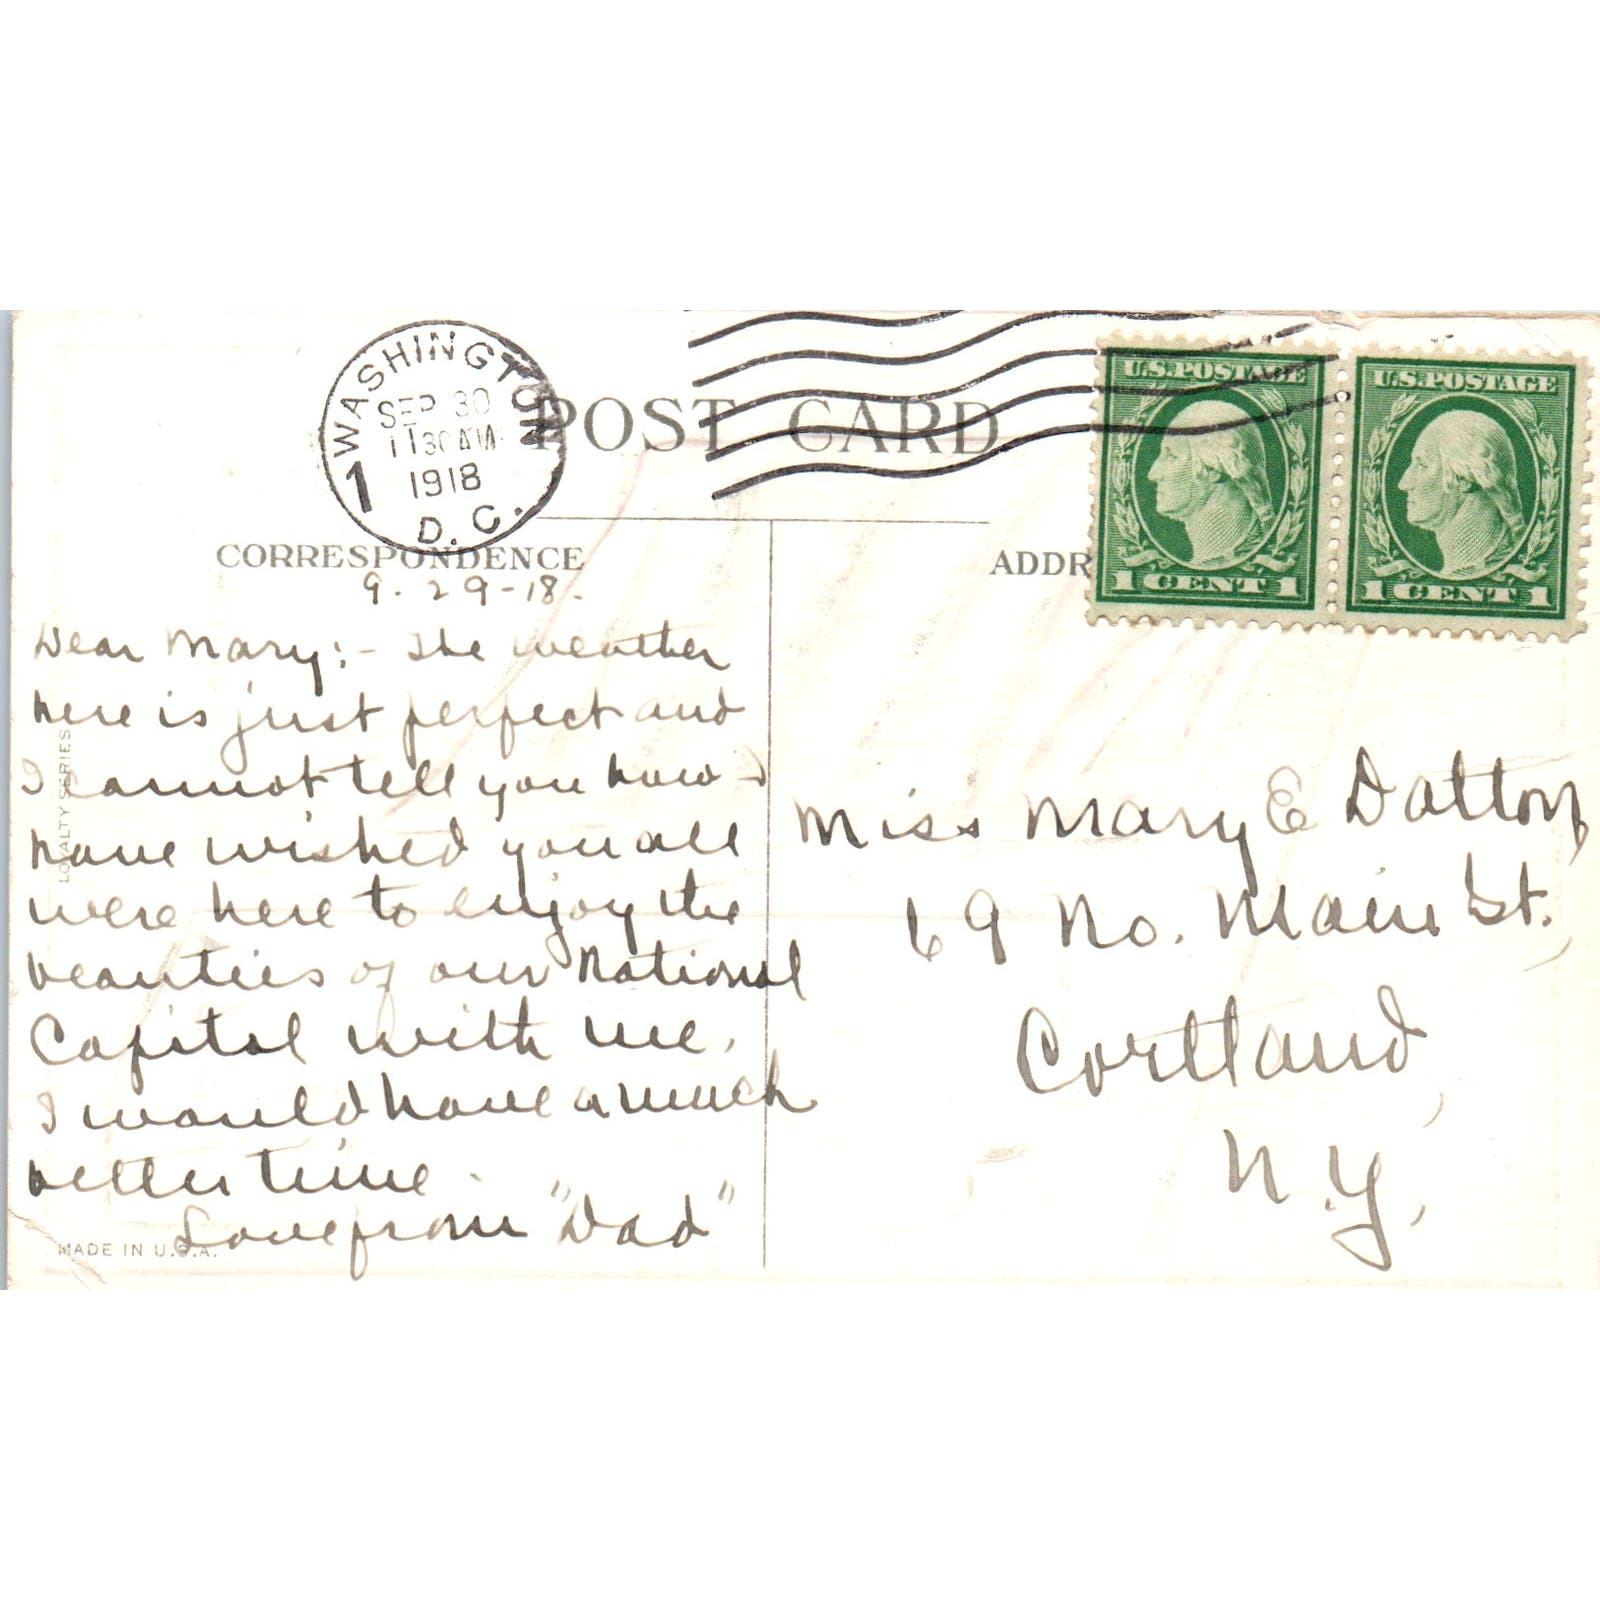 WASHINGTON
SEP 30
11 30 AM
1918
1
D. C.
POST CARD
U.S. POSTAGE
1 CENT 1
U.S. POSTAGE
1 CENT 1
CORRESPONDENCE
ADDR
9-29-18.
Dear Mary:- The weather
here is just perfect and
I cannot tell you how I
have wished you all
were here to enjoy the
beauties of our National
Capitol with me.
I would have a much
better time.
Love from "Dad"
Miss Mary E Dalton,
69 No. Main St.,
Cortland,
N.Y,
LOYALTY SERIES
MADE IN U.S.A.